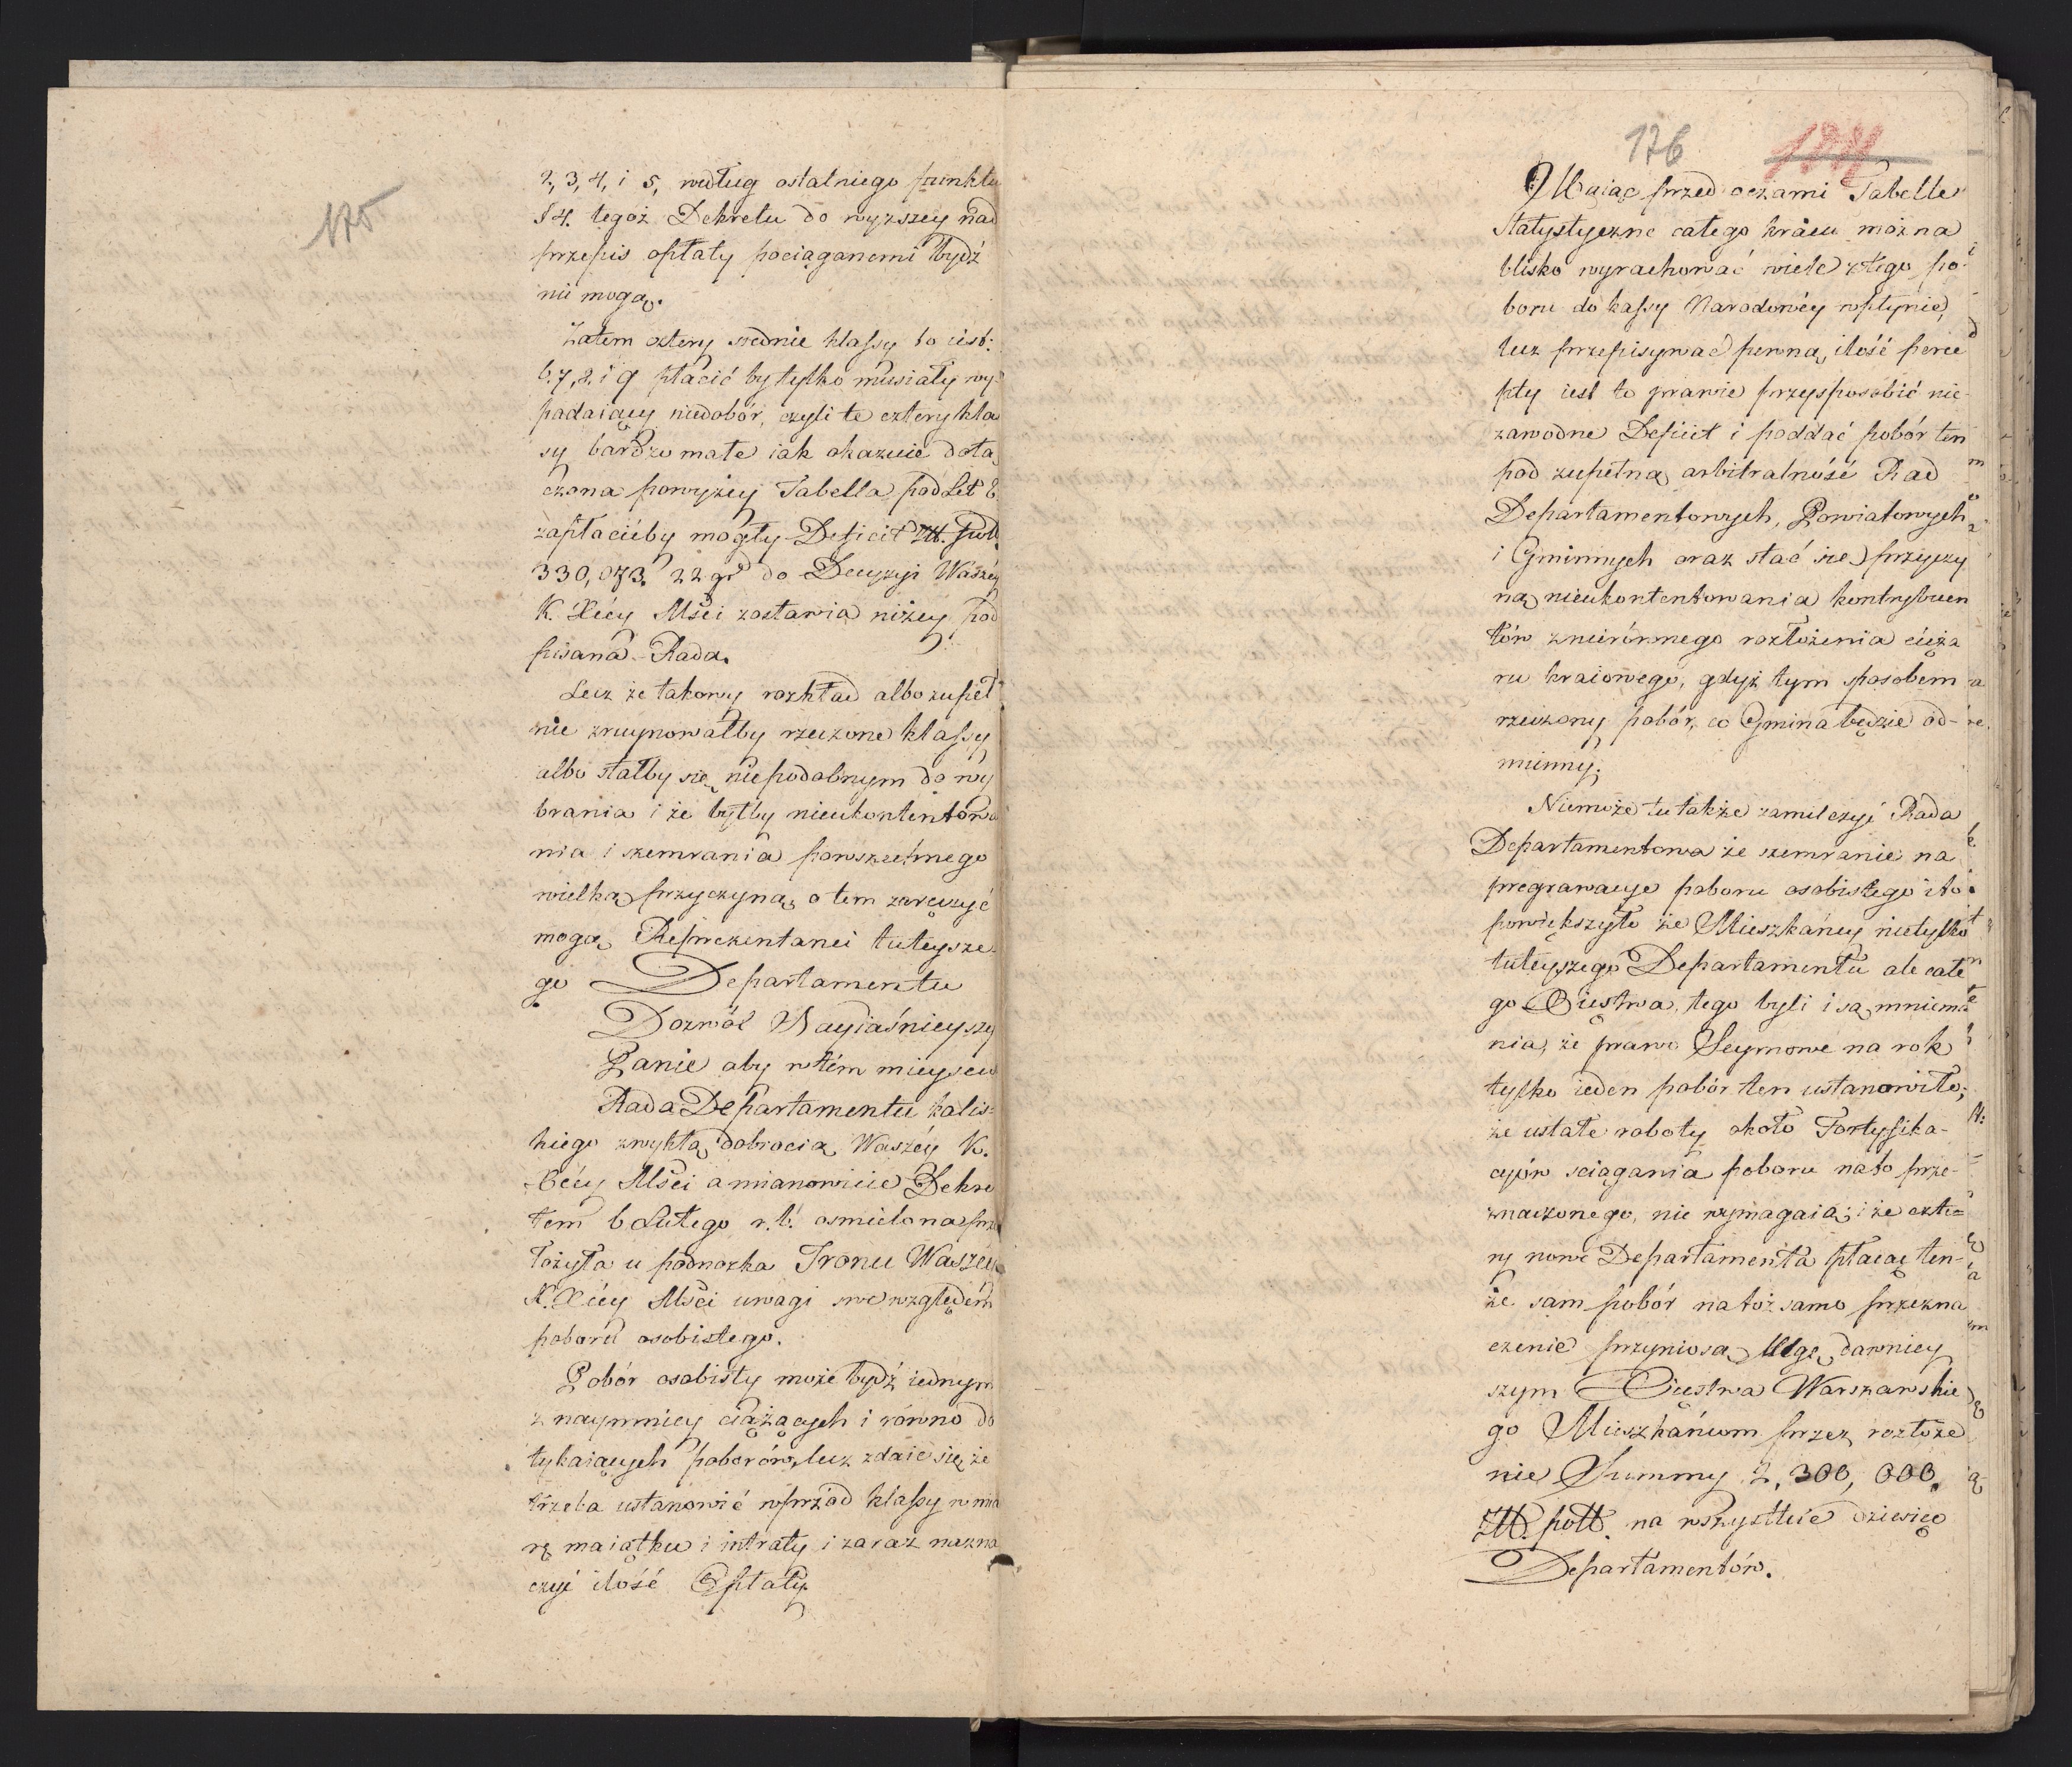 175
2, 3, 4, i 5, według ostatniego punktu
§ 4. tegoż Dekretu do wyższey nad
przepis opłaty pociąganemi bydź
nie mogą.
Zatem cztery srednie klassy to iest:
6. 7, 8. i 9 płacić by tylko musiały wy-
padaiący niedobór, czyli te cztery kla
sy bardzo małe iak okazuie dołą
czona powyżey Tabella pod Lit E.
zapłacićby mogły Deficit Zł. pol.
330,073. 22 gr do Decyzyi Waszéy
K. Xcéy Mści zostawia niżey pod
pisana Rada.
Lecz że takowy rozkład albo zupeł
nie zruynowałby rzeczone klassy
albo stałby się niepodobnym do wy
brania i że byłby nieukontentowa
nia i szemrania powszechnego
wielką przyczyną, o tem zaręczyć
mogą Reprezentanci tuteysze-
go Departamentu
Dozwól Nayiaśnieyszy
Panie aby w tém mieyscu
Rada Departamentu kalis-
kiego zwykłą dobrocią Waszéy K.
Xcéy Mści a mianowicie Dekre
tem 6 Lutego r. b. osmielona prze
łożyła u podnożka Tronu Waszéy
K. Xcéy Mści uwagi swe względem
poboru osobistego.
Pobór osobisty może bydź iednym
z naymniey ciążących i równo do
tykaiących poborów, lecz zdaie się że
trzeba ustanowić wprzód klassy w mia
rę maiątku i intraty i zaraz nazna
czyć ilość Opłaty
176
Maiąc przed oczami Tabelle
Statystyczne całego kraiu można
blisko wyrachować wiele z tego po-
boru do kassy Narodowéy wpłynie,
lecz przepisywać pewną ilość perce
pty iest to prawie przysposobić nie-
zawodne Deficit i poddać pobór ten
pod zupełną arbitralność Rad
Departamentowych, Powiatowych
i Gminnych oraz stać się przyczy
ną nieukontentowania kontrybuen
tów z nierównego rozłożenia cięża
ru kraiowego, gdyż tym sposobem
rzeczony pobór, co Gmina będzie od-
mienny.
Niemoże tu także zamilczyć Rada
Departamentowa że szemranie na
pregrawacye poboru osobistego i to
powiększyło że Mieszkańcy nietylko
tuteyszego Departamentu ale całe
go Xięstwa, tego byli i są mniema
nia, że prawo Seymowe na rok
tylko ieden pobór ten ustanowiło;
że ustałe roboty około Fortyfika-
cyów sciągania poboru na to prze-
znaczonego, nie wymagaią; i że czte-
ry nowe Departamenta płacąc ten-
że sam pobór na toż samo przezna
czenie przyniosą Ulgę dawniey
szym Xięstwa Warszawskie
go Mieszkańcom przez rozłoże
nie Summy 2,300,000.
Zł. poll. na wszystkie dziewięć
Departamentów.